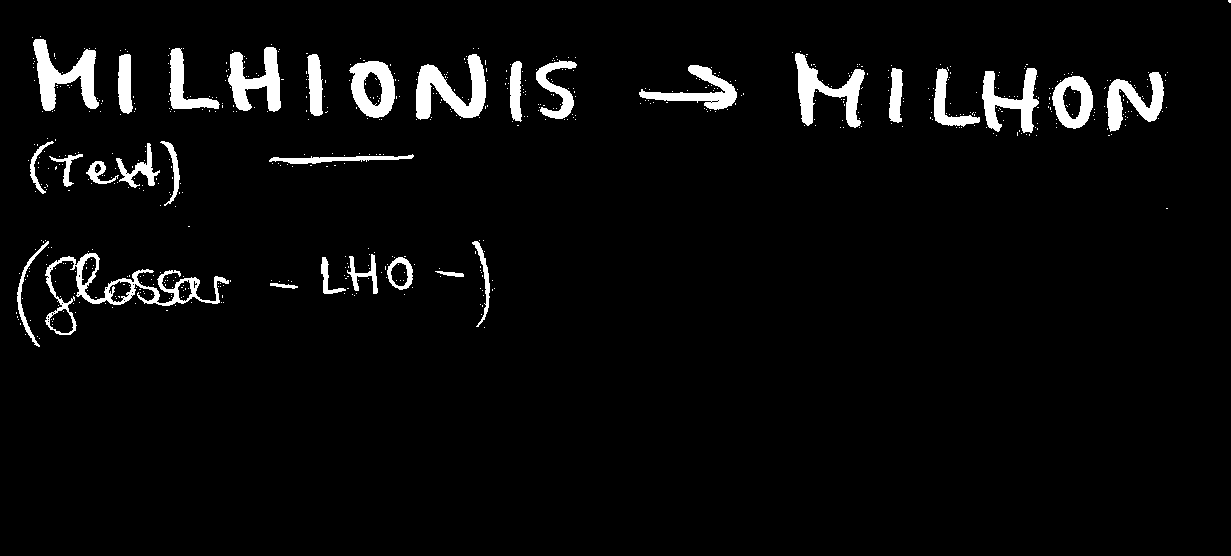 MILHIONIS → MILHON
(Text)
(Glossar - LHO -)